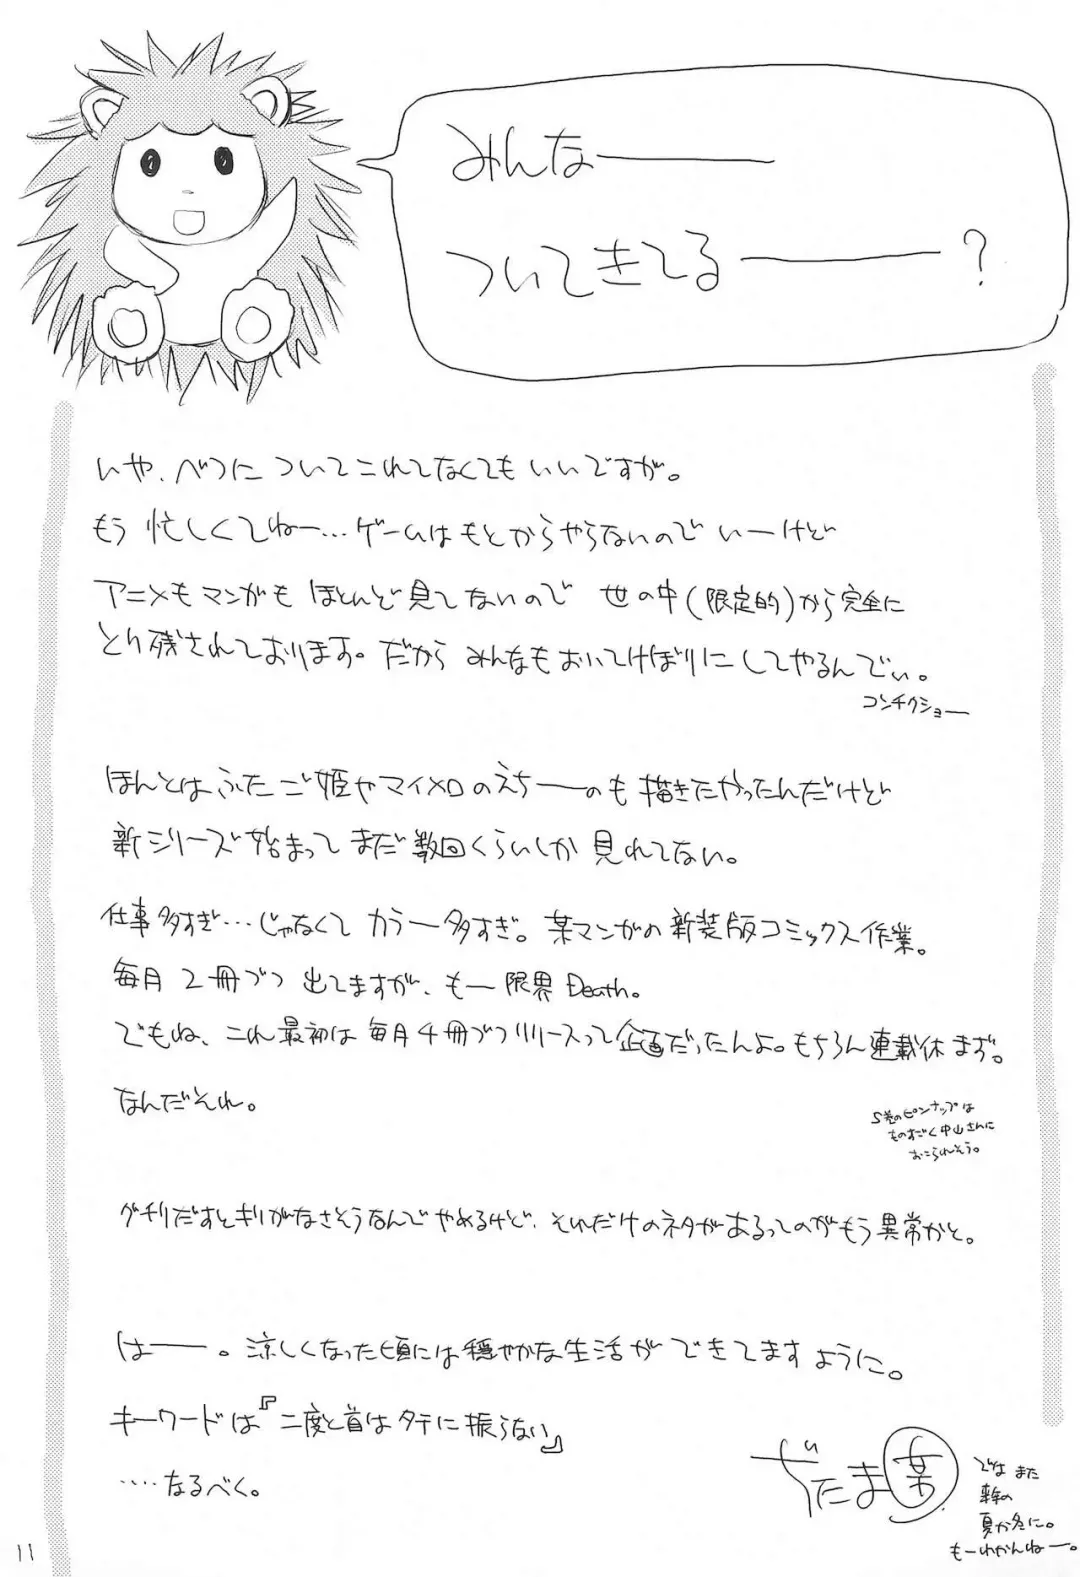 みんなーーー
ついてきてるーーー？
いや、べつについてこれてなくてもいいですが。
もう忙しくてねー…ゲームはもとからやらないのでいーけど
アニメもマンガもほとんど見てないので 世の中(限定的)から完全に
とり残されております。だから みんなもおいてけぼりにしてやるんでぃ。
コンチクショー
ほんとはふたご姫やマイメロのえちーのも描きたやったんだけど
新シリーズ始まってまだ数回くらいしか見れてない。
仕事多すぎ…じゃなくて カラー多すぎ。某マンガの新装版コミックス作業。
毎月2冊づつ出てますが、もー限界Death。
でもね、これ最初は毎月4冊づつリリースって企画だったんよ。もちろん連載休まず。
なんだそれ。
5巻のピンナップは
ものすごく中山さんに
おこられそう。
グチりだすとキリがなさそうなんでやめるけど、それだけのネタがあるってのがもう異常かと。
はーー。涼しくなった頃には穏やかな生活ができてますように。
キーワードは『二度と首はタテに振らない』
‥‥なるべく。
たま某
ではまた
夏か冬に。
もーわかんねー。
11